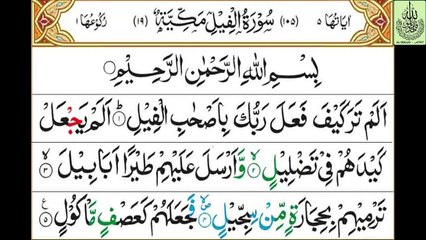 اٰیَاتُهَا ۵ (۱۰۵) سُوْرَةُ الْفِيْلِ مَكِّيَّةٌ (۱۹) رُكُوْعُهَا ۱
بِسْمِ اللّٰهِ الرَّحْمٰنِ الرَّحِيْمِ
اَلَمْ تَرَ كَيْفَ فَعَلَ رَبُّكَ بِاَصْحٰبِ الْفِيْلِ ۱ اَلَمْ يَجْعَلْ
كَيْدَهُمْ فِيْ تَضْلِيْلٍ ۲ وَّاَرْسَلَ عَلَيْهِمْ طَيْرًا اَبَابِيْلَ ۳
تَرْمِيْهِمْ بِحِجَارَةٍ مِّنْ سِجِّيْلٍ ۴ فَجَعَلَهُمْ كَعَصْفٍ مَّاْكُوْلٍ ۵